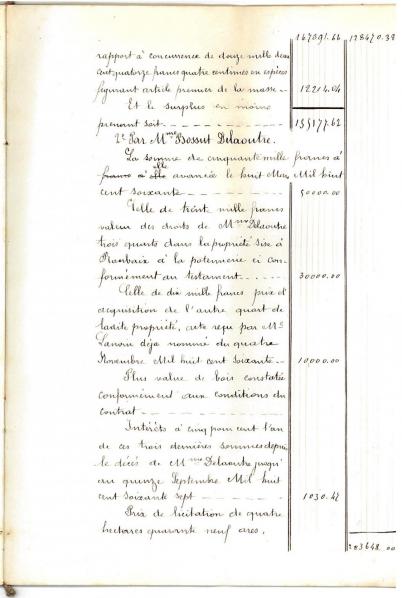 167391.66 128470.38
rapport à concurrence de douze mille deux
cent quatorze francs quatre centimes en espèces
figurant article premier de la masse - - 12214.04
Et le surplus en moins
prenant soit - - - - - - - - 155177.62
2° Par Mme Bossut Delaoutre.
La somme de cinquante mille francs à
elle avancée le huit Mars Mil huit
cent soixante - - - - - - - - 50000.00
Celle de trente mille francs
valeur des droits de Mme Delaoutre
trois quarts dans la propriété sise à
Roubaix à la potennerie ci con-
formément au testament - - - - - 30000.00
Celle de dix mille francs prix d'
acquisition de l'autre quart de
ladite propriété, acte reçu par Me
Lanoin déjà nommé du quatre
Novembre Mil huit cent soixante - - 10,000.00
Plus value de bois constatée
conformément aux conditions du
contrat - - - - - - - - - -
Intérêts à cinq pour cent l'an
de ces trois dernières sommes depuis
le décès de Mme Delaoutre jusqu'
au quinze Septembre Mil huit
cent soixante sept - - - - - - 1030.42
Prix de licitation de quatre
hectares quarante neuf ares,
283648.00